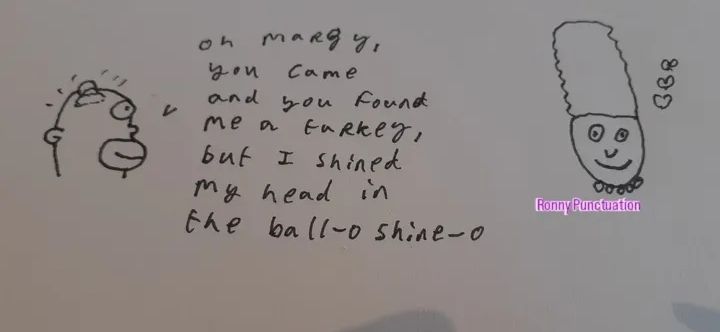 oh margy,
you came
and you found
me a turkey,
but I shined
my head in
the ball-o shine-o
Ronny Punctuation